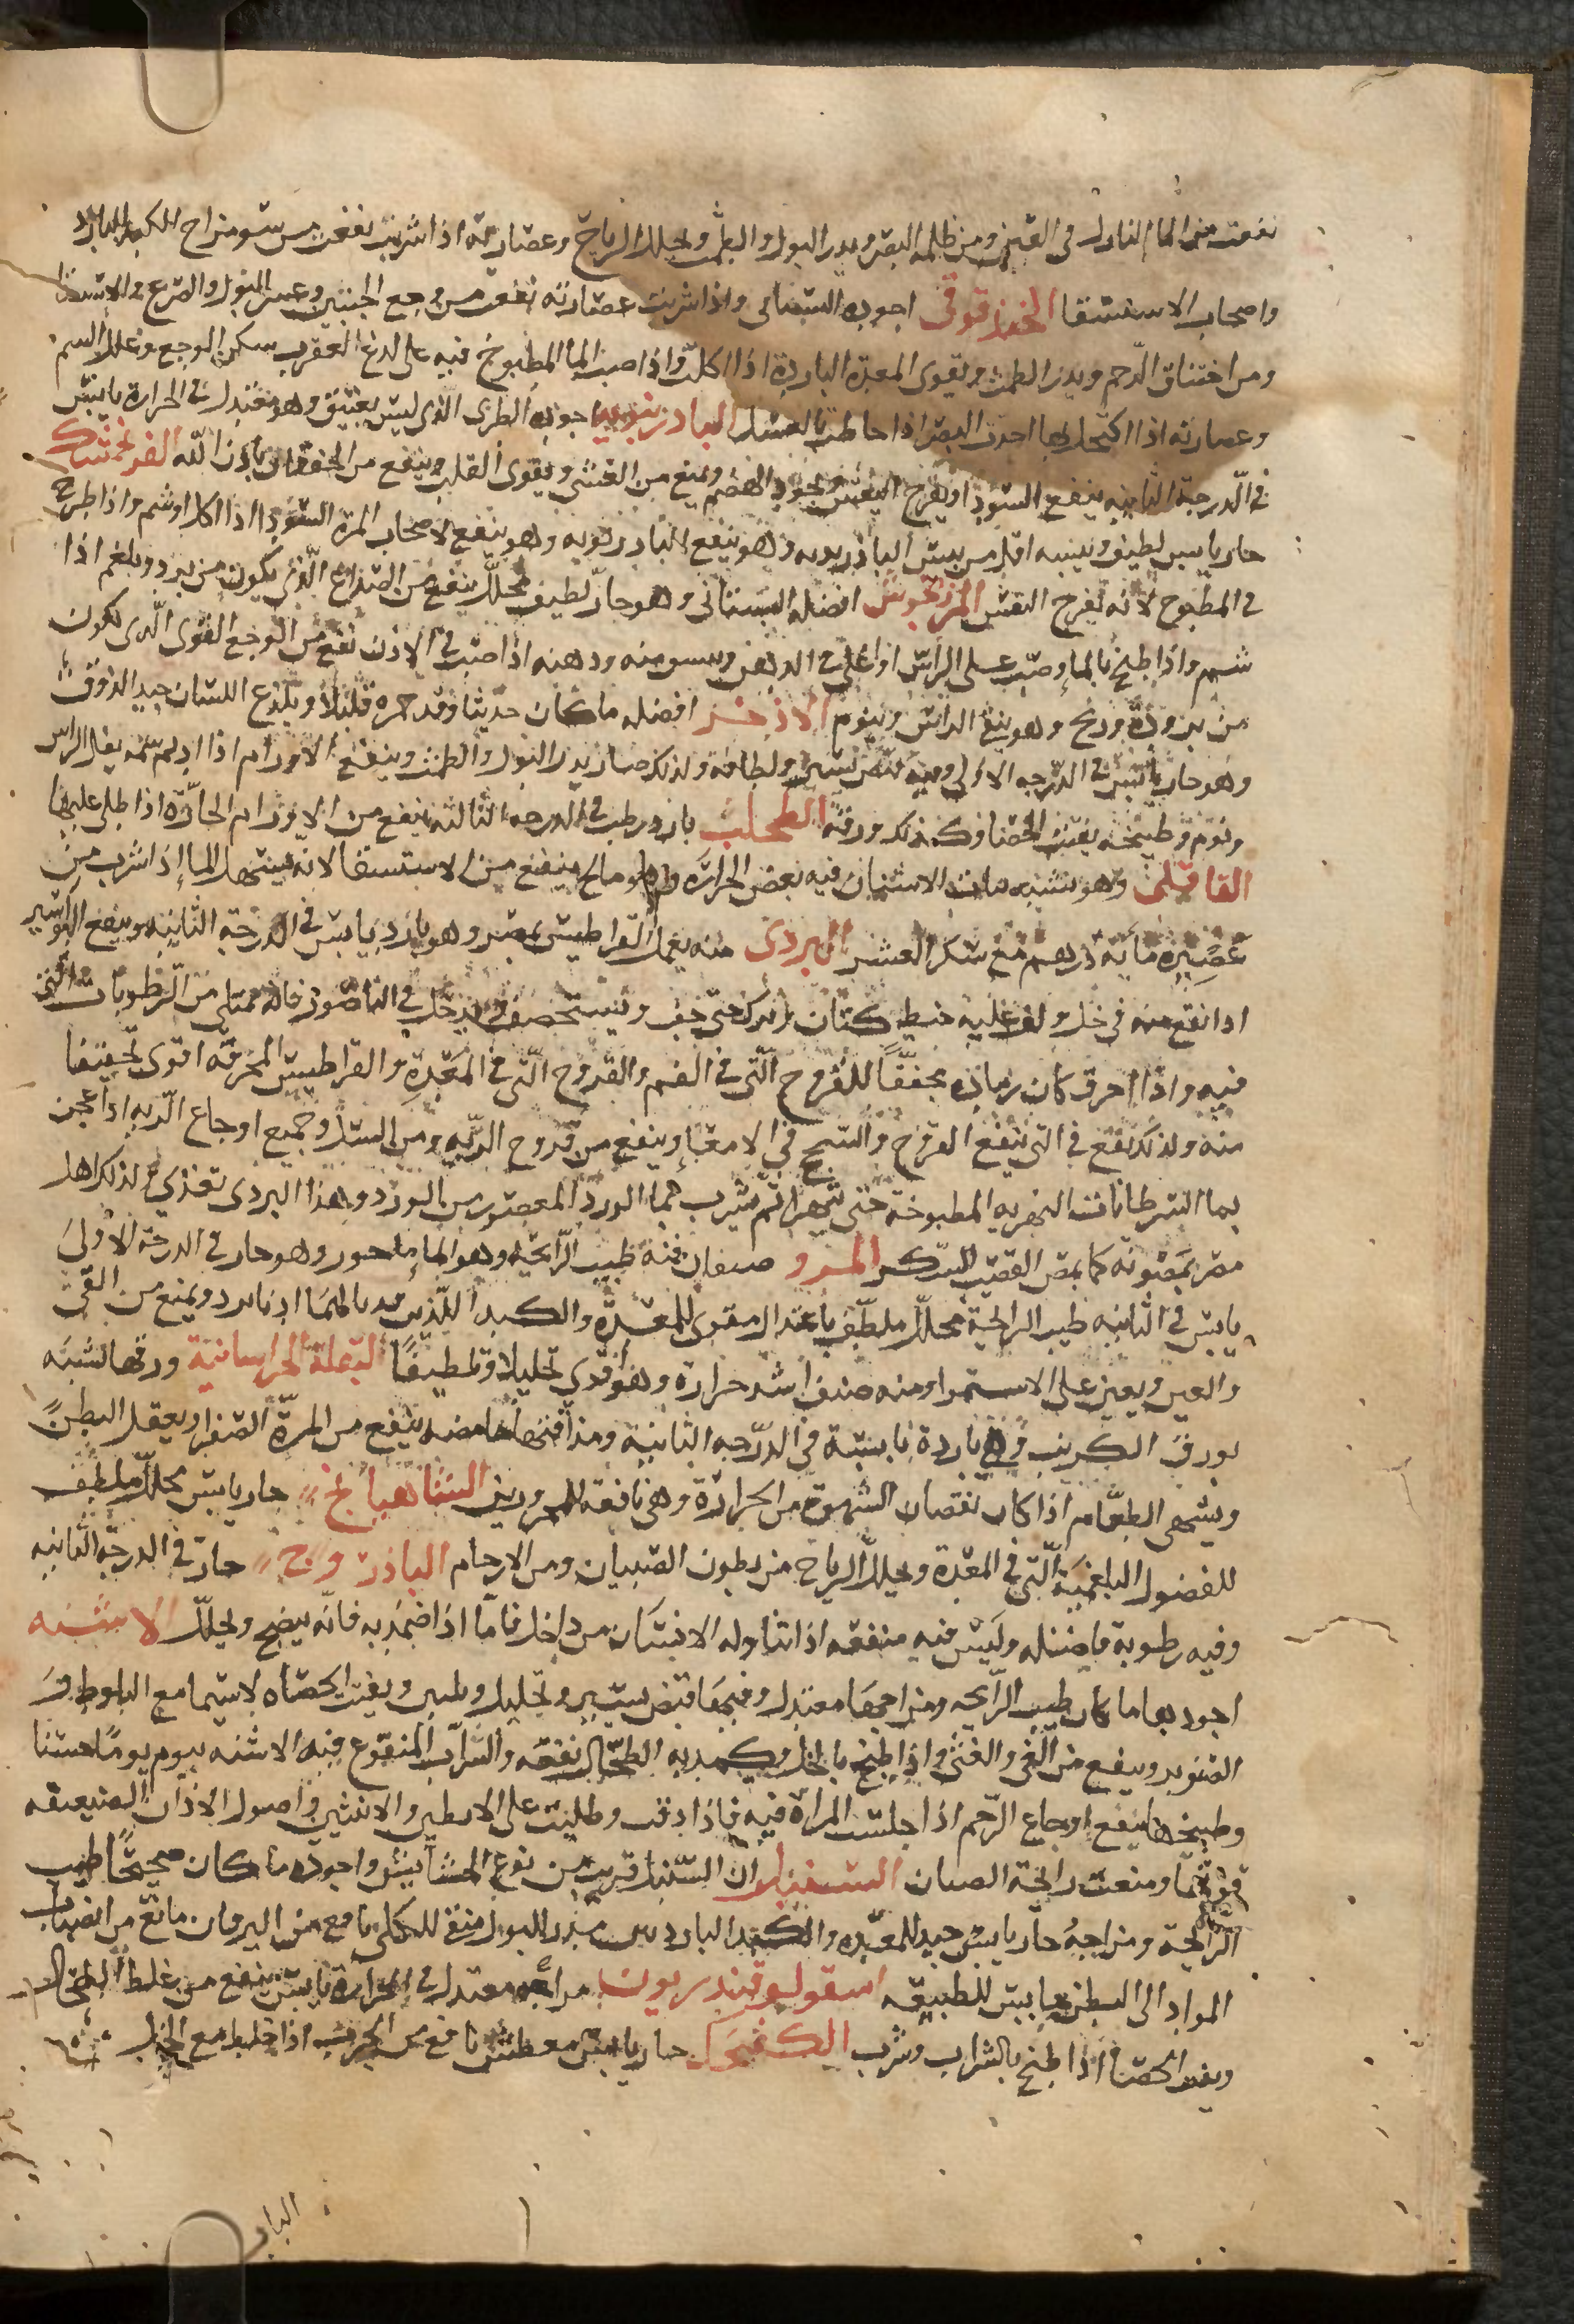 نفعت من الما النازل في العين ومن ظلمه البصر ويدر البول والطمث ويحلل الرياح وعصارته اذا شربت نفعت من سو مزاج الكبد البارد
واصحاب الاستسقا الحندقوقى اجوده البستاني واذا شربت عصارته نفعت من وجع الجنبين وعسر البول والصرع والاستسقا
ومن اختناق الرحم ويدر الطمث ويقوى المعدة الباردة اذا اكلت واذا صب الما المطبوخ فيه على لدغ العقرب سكن الوجع وحلل السم
وعصارته اذا اكتحل بها احدت البصر اذا خلطت بالعسل البادرنبويه اجوده الطرى الذى ليس بعتيق وهو معتدل فى الحرارة يابس
في الدرجة الثانيه ينفع السودا ويفرح النفس ويجود الهضم ويمنع من الغشى ويقوى القلب وينفع من الخفقان باذن الله الفرنجمشك
حار يابس لطيف ويبسه اقل من يبس البادرنبويه وهو ينفع البادرنبويه وهو ينفع لاصحاب المرة السودا اذا اكل او شم واذا طرح
في المطبوخ لانه يفرح النفس المرزنجوش افضله البستاني وهو حار لطيف محلل ينفع من الصداع الذى يكون من برد وبلغم اذا
شم واذا طبخ بالما وصب على الراس او اغلى في الدهن ودهنه اذا صب في الاذن نفع من الوجع القوى الذى يكون
من برودة وريح وينوم الاذخر افضله ما كان حديثا وفيه حمره قليلا ويلذع اللسان جيد الذوق
وهو حار يابس في الدرجه الاولى وفيه قبض يسير ولطافة ولذلك صار يدر البول والطمث وينفع الاورام اذا اديم شمه يثقل الراس
ونوم وطبيخه يفتت الحصا وكذلك ورقه الطحلب بارد رطب في الدرجه الثالثه ينفع من الاورام الحارة اذا طلى عليها
القاقلى وهو يشبه نبات الاشنان فيه بعض الحراره وهو مالح ينفع من الاستسقا لانه يسهل الما اذا شرب من
عصيره مايه درهم مع سكر العشر البردى منه يعمل القراطيس بمصر وهو بارد يابس في الدرجة الثانيه وينفع البواسير
اذا نقع منه في خل ولف عليه خيط كتان وترك حتى جف ويستحصف ويدخل في الناصور فانه ممتلى من الرطوبات التى
فيه واذا احرق كان رماده مجففًا للقروح التى فى الفم والقروح التى في المعدة والقراطيس المحرقه اقوى تجفيفا
منه ولذلك تقع في التى ينفع القروح والسحج في الامعا وينفع من قروح الريه ومن السل وجميع اوجاع الريه اذا عجن
بما السرطانات النهريه المطبوخة حتى تتهرا ثم شرب بما الورد المعصور من الورد وهذا البردى تغذى ولذلك اهل
مصر يمصونه كما يمص القصب السكر المرو صنفان منه طيب الرائحه وهو الماحور وهو حار في الدرجة الاولى
يابس فى الثانيه طيب الرايحة محلل ملطف باعتدال مقوى للمعدة والكبد اللذين نالهما اذا برد ويمنع من القى
ويعين على الاستمرا ومنه صنف اشد حرارة وهو اقوى تحليلا وتلطيفا البقلة الخراسانية ورقها تشبه
بورق الكرنب وهى باردة يابسة في الدرجه الثانية ومذاقتها حامضه ينفع من المرة الصفرا ويعقل البطن
ويشهى الطعام اذا كان نقصان الشهوة من الحرارة وهى نافعه للمحرورين الشاهبابج حار يابس محلل ملطف
للفضول البلغمية التى فى المعدة ويحلل الرياح من بطون الصبيان ومن الارحام الباذروج حار في الدرجة الثانيه
وفيه رطوبة فاضله وليس فيه منفعه اذا تناوله الانسان من داخل فاما اذا ضمد به فانه ينضج ويحلل الاشنه
اجودها ما كان طيب الرايحه ومزاجها معتدل وفيها قبض يسير وتحليل وتليين ويفتت الحصاه لاسيما مع البلوط و
الصنوبر وينفع من القى والغثى واذا طبخ بالخل وكمد به الطحال نفعه والشراب المنقوع فيه الاشنه ينوم نوما حسنا
وطبيخها ينفع اوجاع الرحم اذا جلست المراة فيه فاذا دقت وطليت على الابطين والانثيين واصول الاذان الضعيفه
قوتها ومنعت رايحة الصنان السنبل ان السنبل قريب من نوع المشايش واجوده ما كان صحيحًا طيب
الرايحة ومزاجه حار يابس جيد للمعده والكبد البارد مدر للبول منق للكلى نافع من اليرقان مانع من انصباب
المواد الى البطن حابس للطبيعه اسقولوقندريون مزاجه معتدل في الحرارة يابس ينفع من غلظ الطحال
ويفتت الحصا اذا طبخ بالشراب وشرب حار يابس معطش نافع من الجرب اذا خلط مع الخل